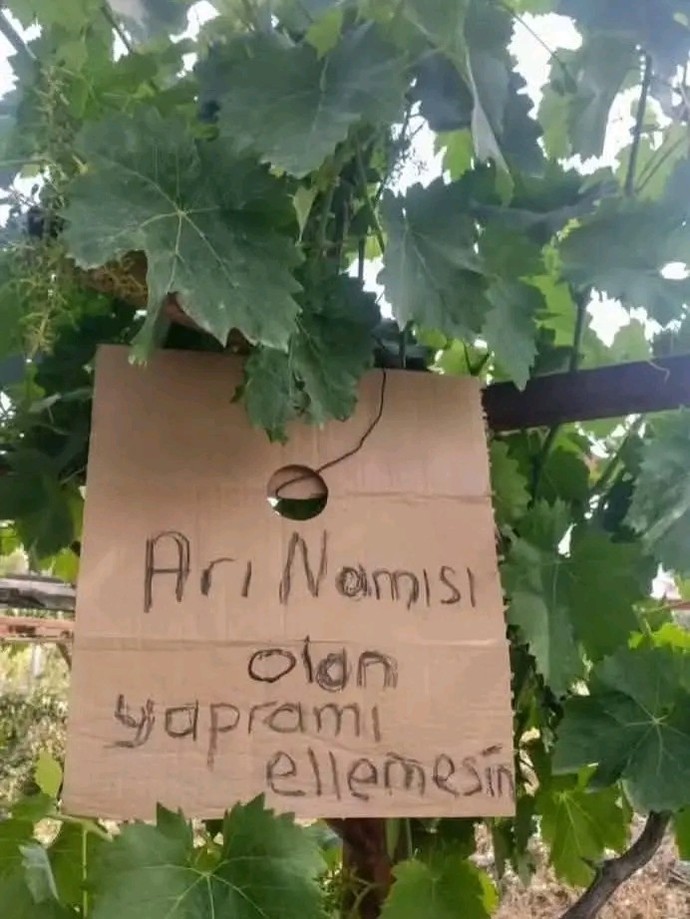 Arı Namısı
olan
yapramı
ellemesin